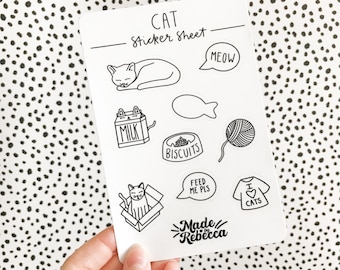 CAT
Sticker Sheet
MEOW
MILK
BISCUITS
FEED
ME PLS
I ♥
CATS
Made
Rebecca